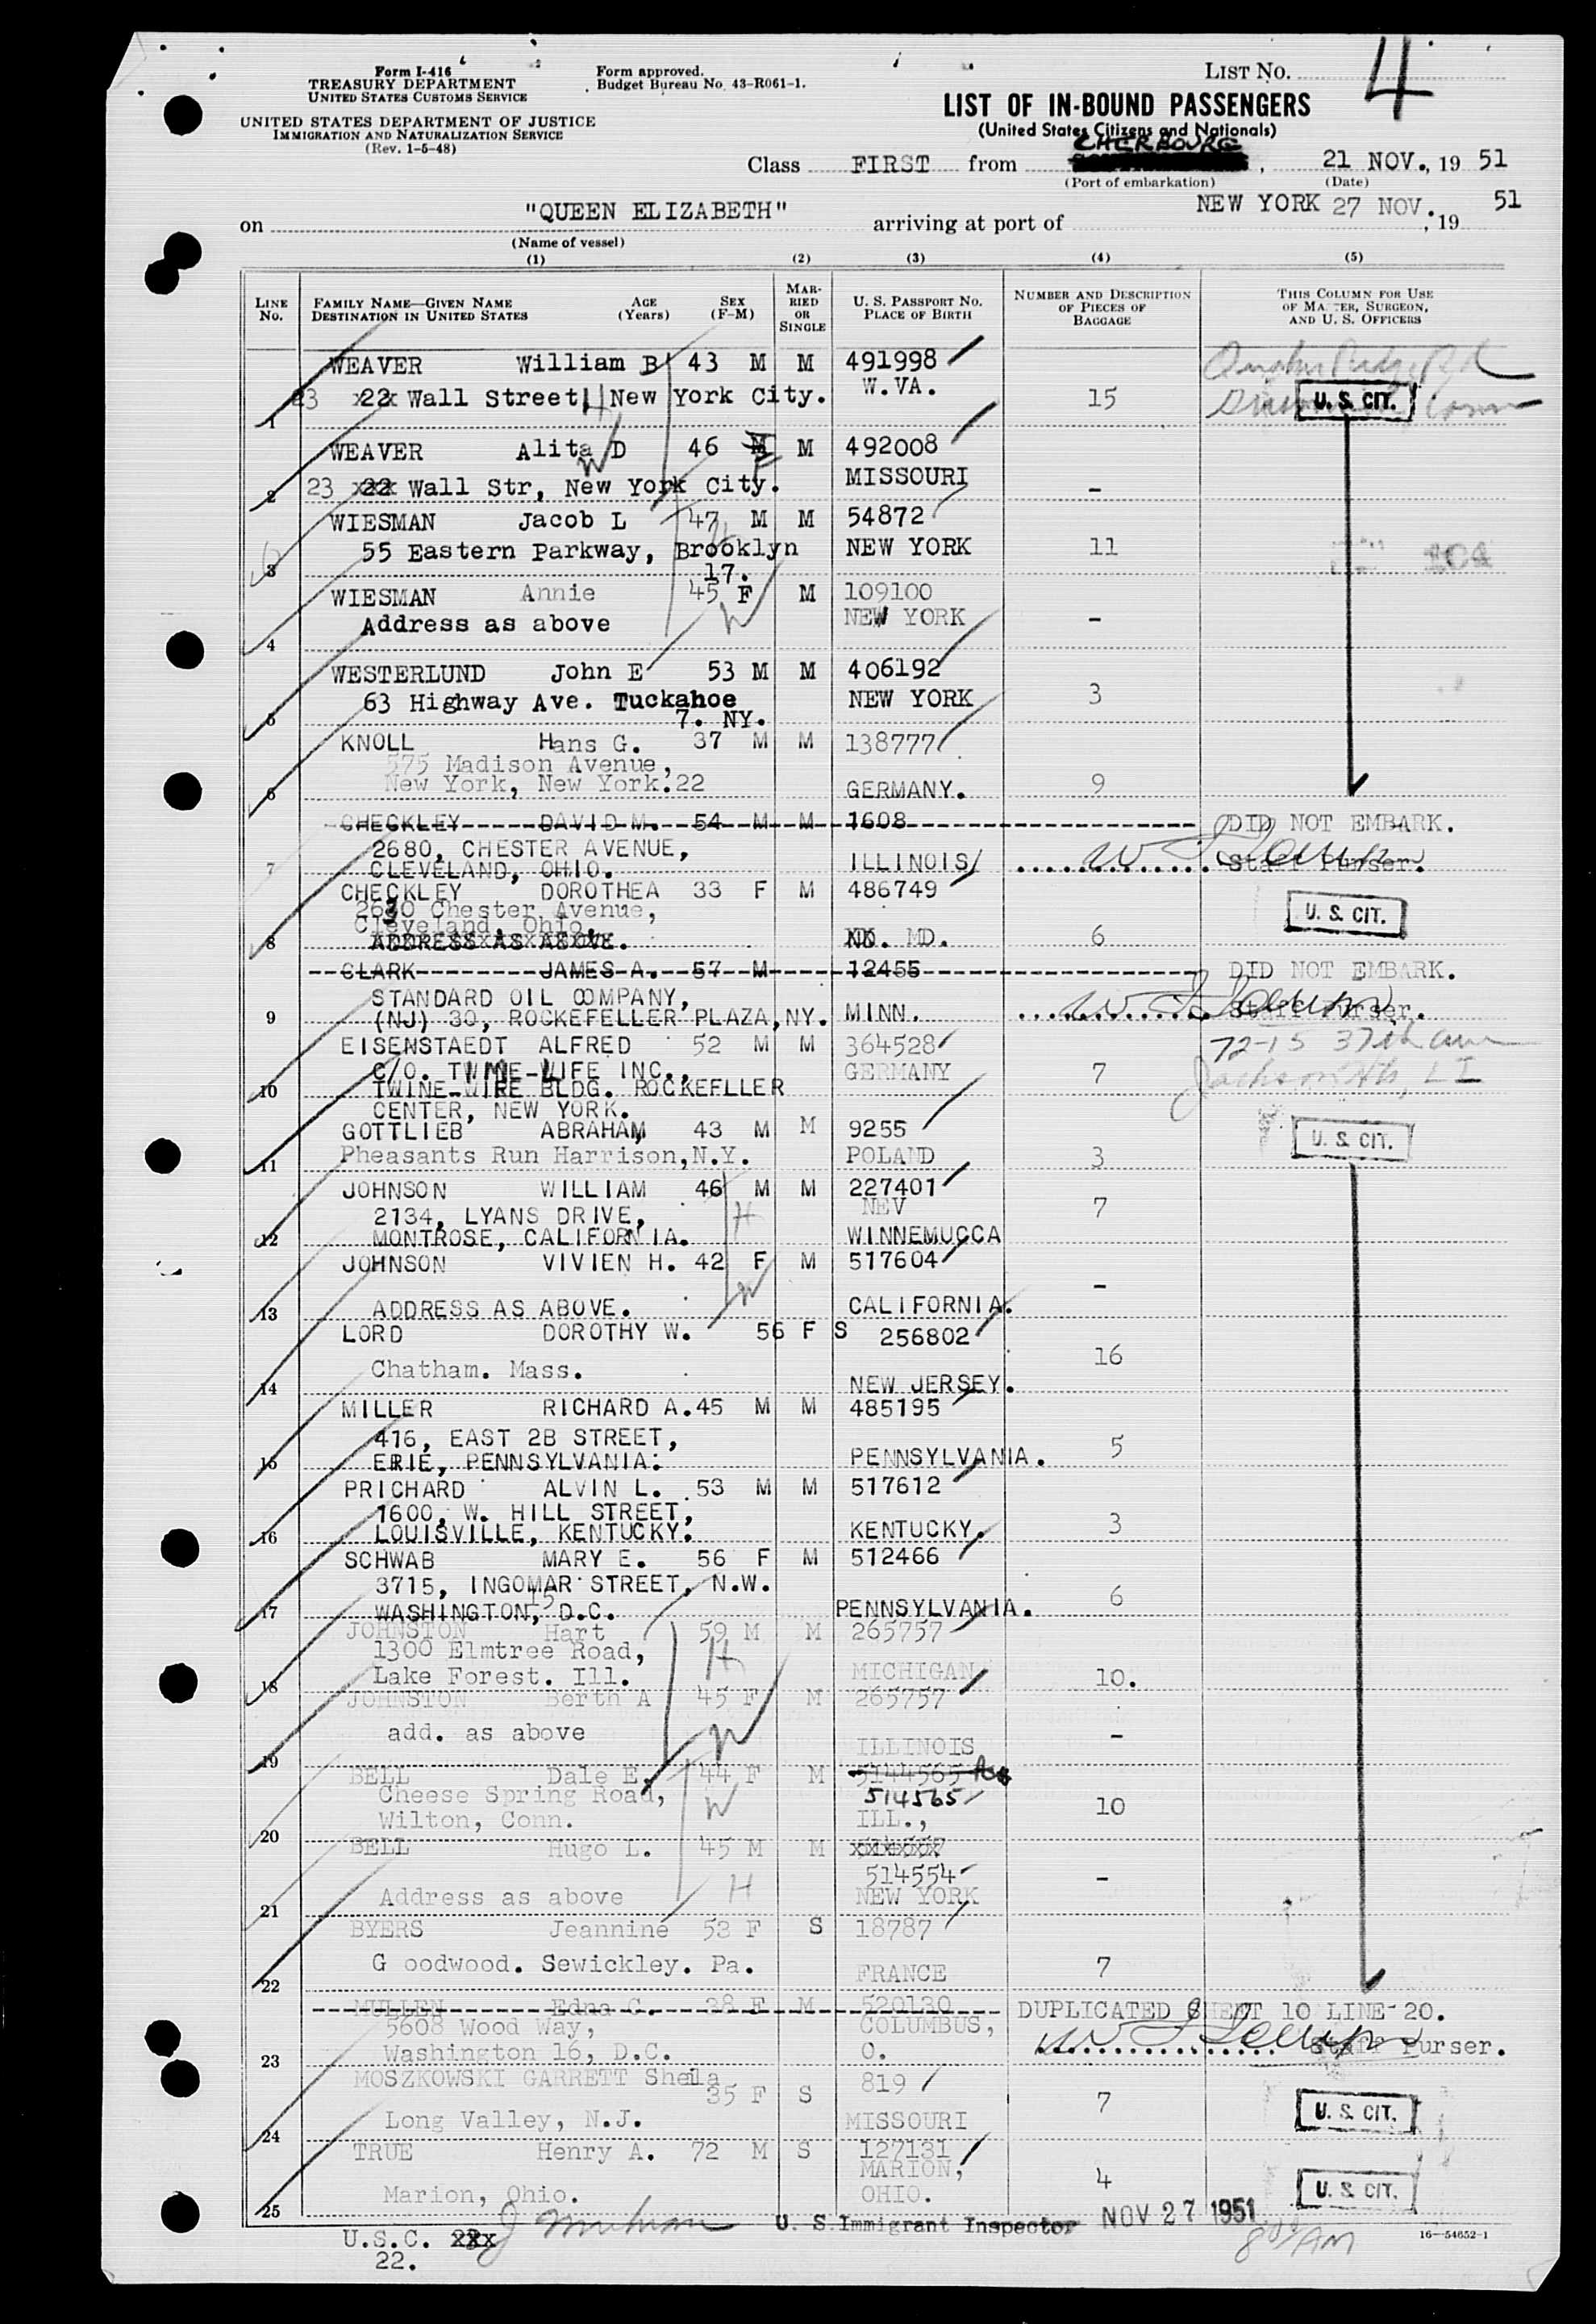 Form I-416
TREASURY DEPARTMENT
UNITED STATES CUSTOMS SERVICE
UNITED STATES DEPARTMENT OF JUSTICE
IMMIGRATION AND NATURALIZATION SERVICE
(Rev. 1-5-48)
Form approved.
Budget Bureau No. 43-R061-1.
LIST No. 4
LIST OF IN-BOUND PASSENGERS
(United States Citizens and Nationals)
Class FIRST from CHERBOURG, 21 NOV., 19 51
(Port of embarkation) (Date)
on "QUEEN ELIZABETH" arriving at port of NEW YORK 27 NOV., 19 51
(Name of vessel)
(1) (2) (3) (4) (5)
LINE No.
FAMILY NAME—GIVEN NAME DESTINATION IN UNITED STATES
AGE (Years)
SEX (F-M)
MARRIED OR SINGLE
U. S. PASSPORT No. PLACE OF BIRTH
NUMBER AND DESCRIPTION OF PIECES OF BAGGAGE
THIS COLUMN FOR USE OF MASTER, SURGEON, AND U. S. OFFICERS
WEAVER William B 43 M M 491998
23 22 Wall Street H New York City. W.VA. 15 U. S. CIT. Conn
1
WEAVER Alita D 46 F M 492008
W
2 23 22 Wall Str, New York City. MISSOURI -
WIESMAN Jacob L 47 M M 54872
3 55 Eastern Parkway, Brooklyn NEW YORK 11
17.
WIESMAN Annie 45 F M 109100
Address as above W NEW YORK -
4
WESTERLUND John E 53 M M 406192
63 Highway Ave. Tuckahoe NEW YORK 3
5 7. NY.
KNOLL Hans G. 37 M M 138777
575 Madison Avenue,
6 New York, New York.22 GERMANY. 9
CHECKLEY DAVID M. 54 M M 1608 DID NOT EMBARK.
2680, CHESTER AVENUE,
7 CLEVELAND, OHIO. ILLINOIS Staff Purser.
CHECKLEY DOROTHEA 33 F M 486749
2630 Chester Avenue, U. S. CIT.
Cleveland, Ohio.
8 ADDRESS AS ABOVE. MD. 6
CLARK JAMES A. 57 M 12455 DID NOT EMBARK.
STANDARD OIL COMPANY,
9 (NJ) 30, ROCKEFELLER PLAZA,NY. MINN. Staff Purser.
EISENSTAEDT ALFRED 52 M M 364528 72-15 37th Ave
C/O. TIME-LIFE INC., GERMANY 7 Jackson Hts, L I
10 TWINE-WIRE BLDG. ROCKEFLLER
CENTER, NEW YORK.
GOTTLIEB ABRAHAM 43 M M 9255 U. S. CIT.
11 Pheasants Run Harrison,N.Y. POLAND 3
JOHNSON WILLIAM 46 M M 227401
2134, LYANS DRIVE, H NEV 7
12 MONTROSE, CALIFORNIA. WINNEMUCCA
JOHNSON VIVIEN H. 42 F M 517604
W -
13 ADDRESS AS ABOVE. CALIFORNIA.
LORD DOROTHY W. 56 F S 256802
Chatham. Mass. 16
14 NEW JERSEY.
MILLER RICHARD A. 45 M M 485195
416, EAST 2B STREET,
15 ERIE, PENNSYLVANIA. PENNSYLVANIA. 5
PRICHARD ALVIN L. 53 M M 517612
1600, W. HILL STREET,
16 LOUISVILLE, KENTUCKY. KENTUCKY. 3
SCHWAB MARY E. 56 F M 512466
3715, INGOMAR STREET, N.W.
15
17 WASHINGTON, D.C. PENNSYLVANIA. 6
JOHNSTON Hart 59 M M 265757
1300 Elmtree Road, H
18 Lake Forest. Ill. MICHIGAN 10.
JOHNSTON Berth A 45 F M 265757
add. as above W -
19 ILLINOIS
BELL Dale E. 44 F M 5144565
Cheese Spring Road, W 514565
Wilton, Conn. ILL., 10
20
BELL Hugo L. 45 M M
514554
21 Address as above H NEW YORK -
BYERS Jeannine 53 F S 18787
G oodwood. Sewickley. Pa. FRANCE 7
22
MULLEN Edna C. 38 F M 520130 DUPLICATED SHEET 10 LINE 20.
5608 Wood Way, COLUMBUS,
23 Washington 16, D.C. O. Staff Purser.
MOSZKOWSKI GARRETT Sheila 35 F S 819 7
U. S. CIT.
24 Long Valley, N.J. MISSOURI
TRUE Henry A. 72 M S 127131
MARION, 4
25 Marion, Ohio. OHIO. U. S. CIT.
U.S.C. 22. U. S. Immigrant Inspector NOV 27 1951
8 AM
16—54652-1